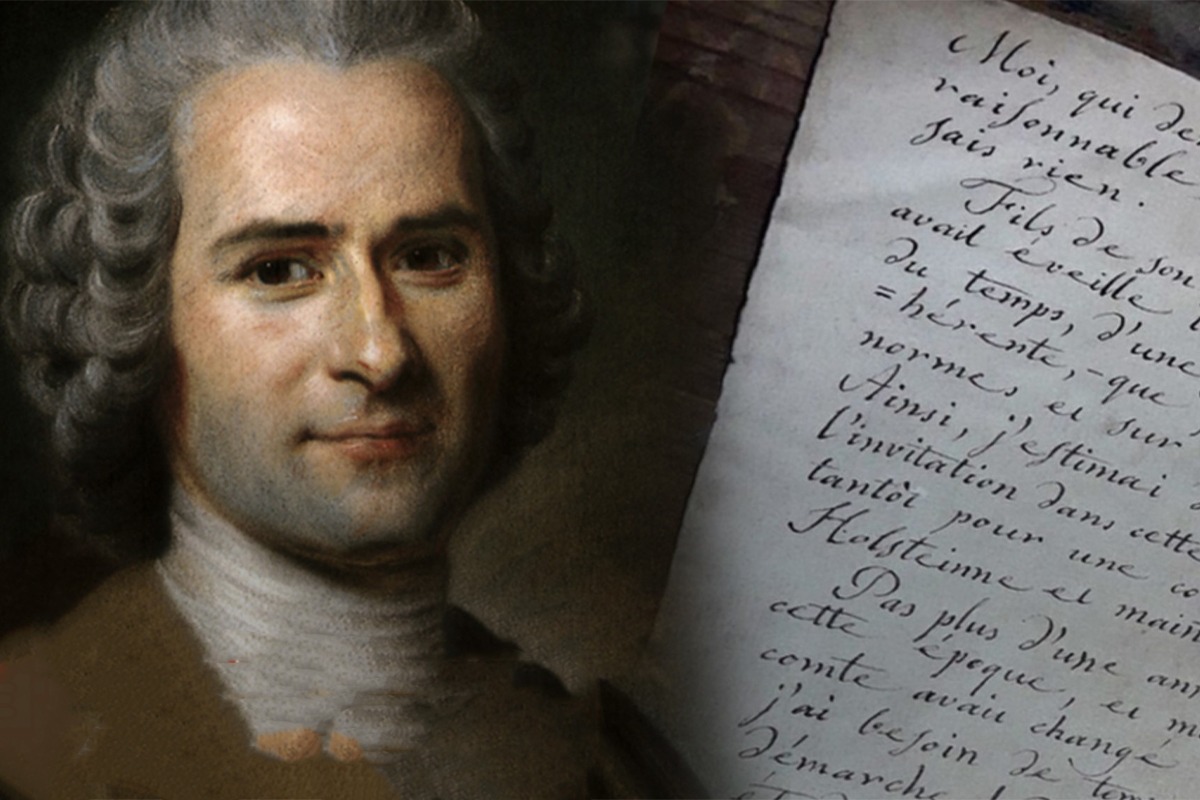 Moi, qui de
raisonnable
sais rien.
Fils de son
avait éveillé
du temps, d'une
=hérente, - que
normes, et sur
Ainsi, j'estimai
l'invitation dans cette
tantôt pour une co
Holsteinne et main
Pas plus d'une ann
cette époque, et m
comte avait changé
j'ai besoin de tem
démarche